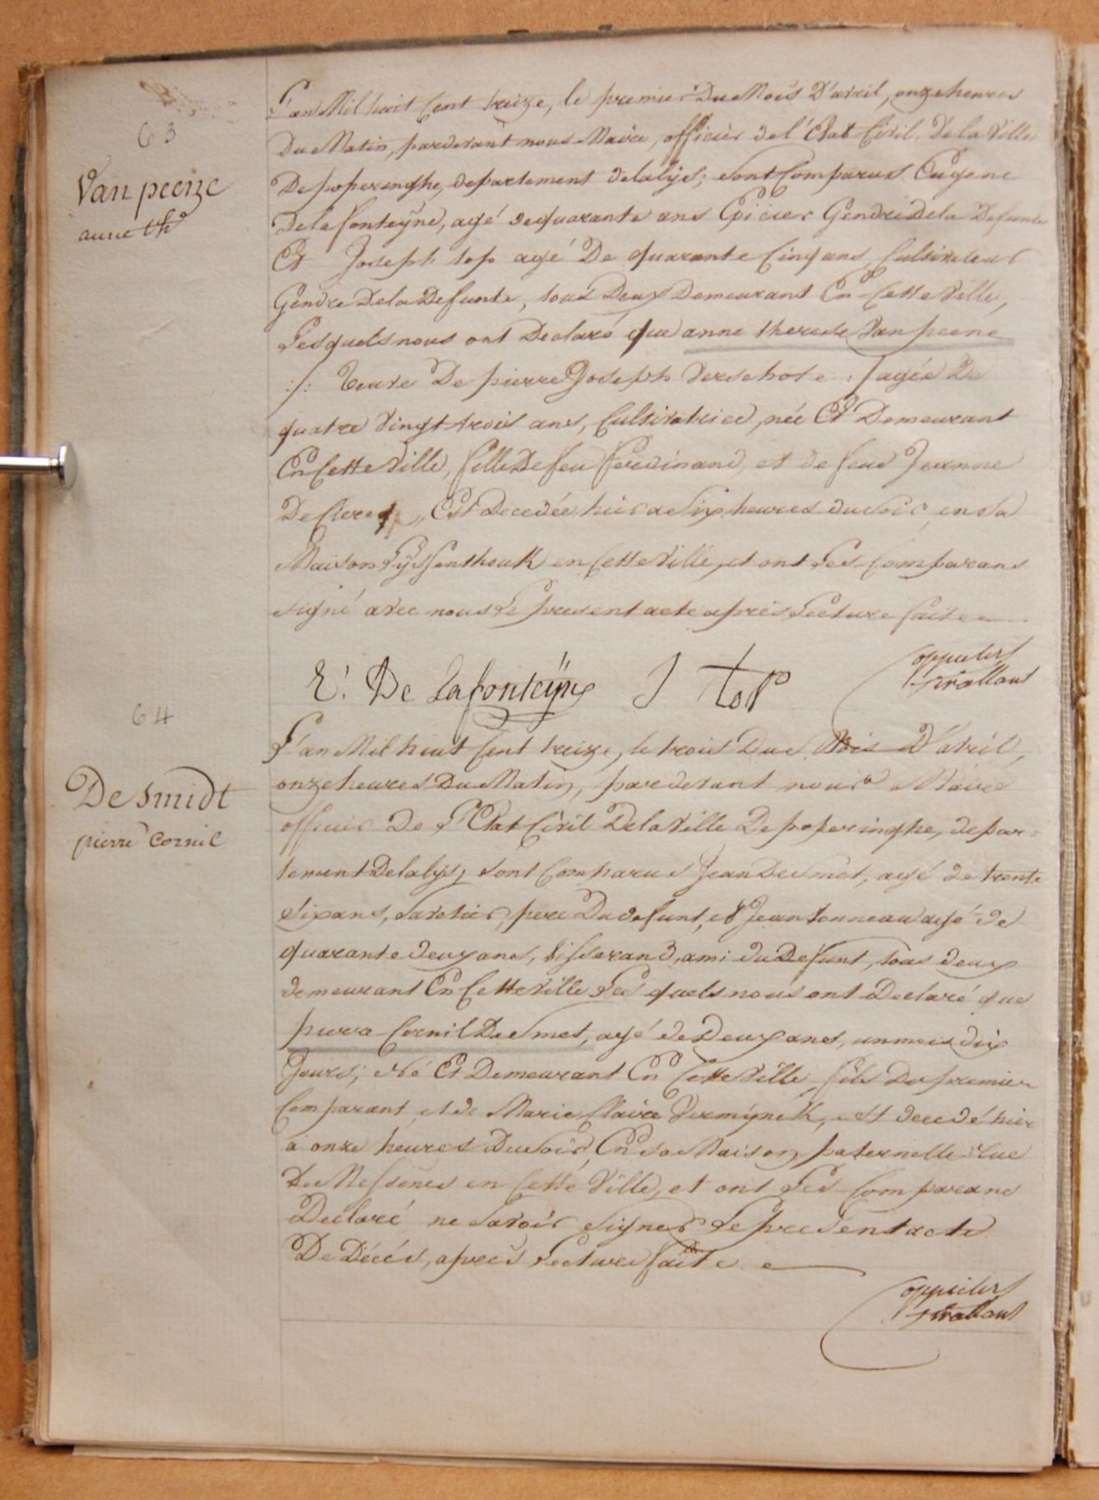 63
Van peene
anne th.
L'an Mil huit Cent treize, le premier Du Mois D'avril, onze heures
Du Matin, pardevant nous Maire, officier de l'Etat Civil De la Ville
De poperinghe, departement delalys; sont Comparus Eugene
Delafonteÿne, agé de quarante ans Epicier Gendre Dela Defunte
Et Joseph top agé De quarante Cinq ans, Cultivateur
Gendre Dela Defunte, tous Deux Demeurant En Cette Ville,
Lesquels nous ont Declaré que anne therese Van peene
:/: Veuve De pierre Joseph Verschore :/ agée De
quatre Vingt trois ans, Cultivatrice, née Et Demeurant
En Cette Ville, fille De feu ferdinand, et de feue Jeanne
De Clercq, Est Decedée hier a Six heures du soir en sa
Maison Lÿssenthouk en Cette Ville, et ont Les Comparans
signé avec nous Le present acte apres Lecture faite
E: De lafonteÿne J top
64
De Smidt
pierre Cornil
L'an Mil huit Cent treize, le trois Du Mois D'avril,
onze heures Du Matin, pardevant nous Maire
officier De L'Etat Civil De la Ville De poperinghe, depar-
tement Delalys, sont Comparus Jean Desmet, agé de trente
Six ans, Savetier, pere Du defunt, et Jean tonneau agé de
quarante deux ans, tisserand, ami du Defunt, tous deux
demeurant En Cette Ville Les quels nous ont Declaré que
pierre Cornil De Smet, agé de Deux ans, un mois dix
Jours, Né Et Demeurant En Cette Ville, fils Du premier
Comparant, et de Marie Claire Vermeÿnck, est decedé hier
a onze heures Du soir En sa Maison paternelle rue
De Messenes en Cette Ville, et ont Les Comparans
Declaré ne Savoir signer Le present acte
De Décés, apres Lecture faite